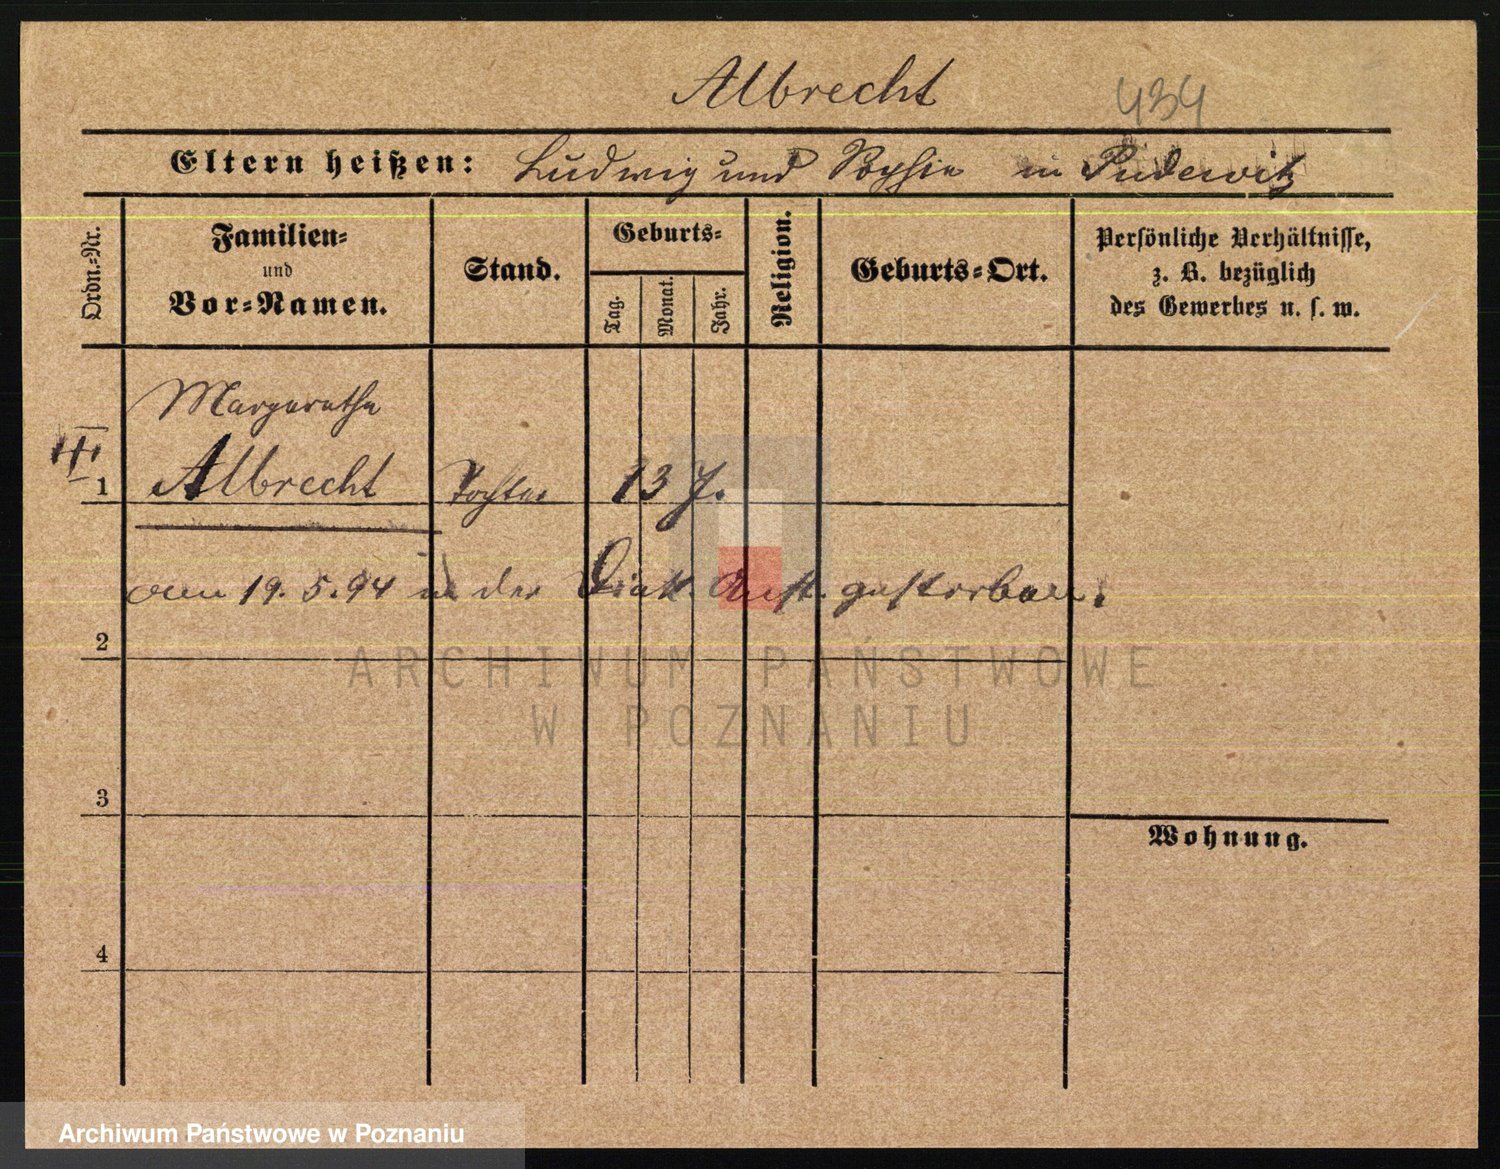 Albrecht 434
Eltern heißen: Ludwig und Sophie in Pudewitz
Ordn.-Nr.
Familien-
und
Vor-Namen.
Stand.
Geburts-
Tag.
Monat.
Jahr.
Religion.
Geburts-Ort.
Persönliche Verhältnisse,
z. B. bezüglich
des Gewerbes u. s. w.
Margarethe
III
1 Albrecht Tochter 13 J.
am 19. 5. 94 in der Diak. Anst. gestorben.
2
ARCHIWUM PAŃSTWOWE
W POZNANIU
3
Wohnung.
4
Archiwum Państwowe w Poznaniu